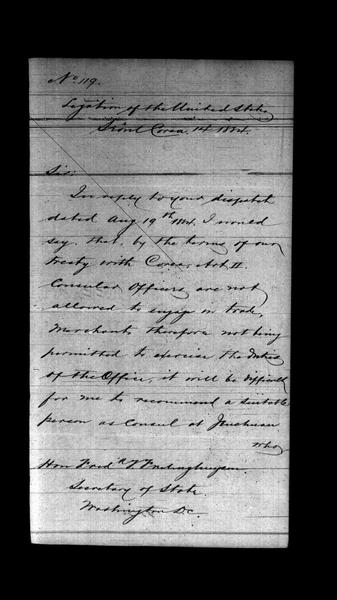 No. 119.
Legation of the United States
Seoul Corea, 14 1884.
Sir:
In reply to your dispatch
dated Aug 19th 1884. I would
say, that, by the terms of our
treaty with Corea, Art II.
Consular Officers are not
allowed to engage in trade,
Merchants therefore not being
permitted to exercise the duties
of the Office, it will be difficult
for me to recommend a suitable
person as Consul at
who
Hon Fredk T Frelinghuysen.
Secretary of State.
Washington D.C.